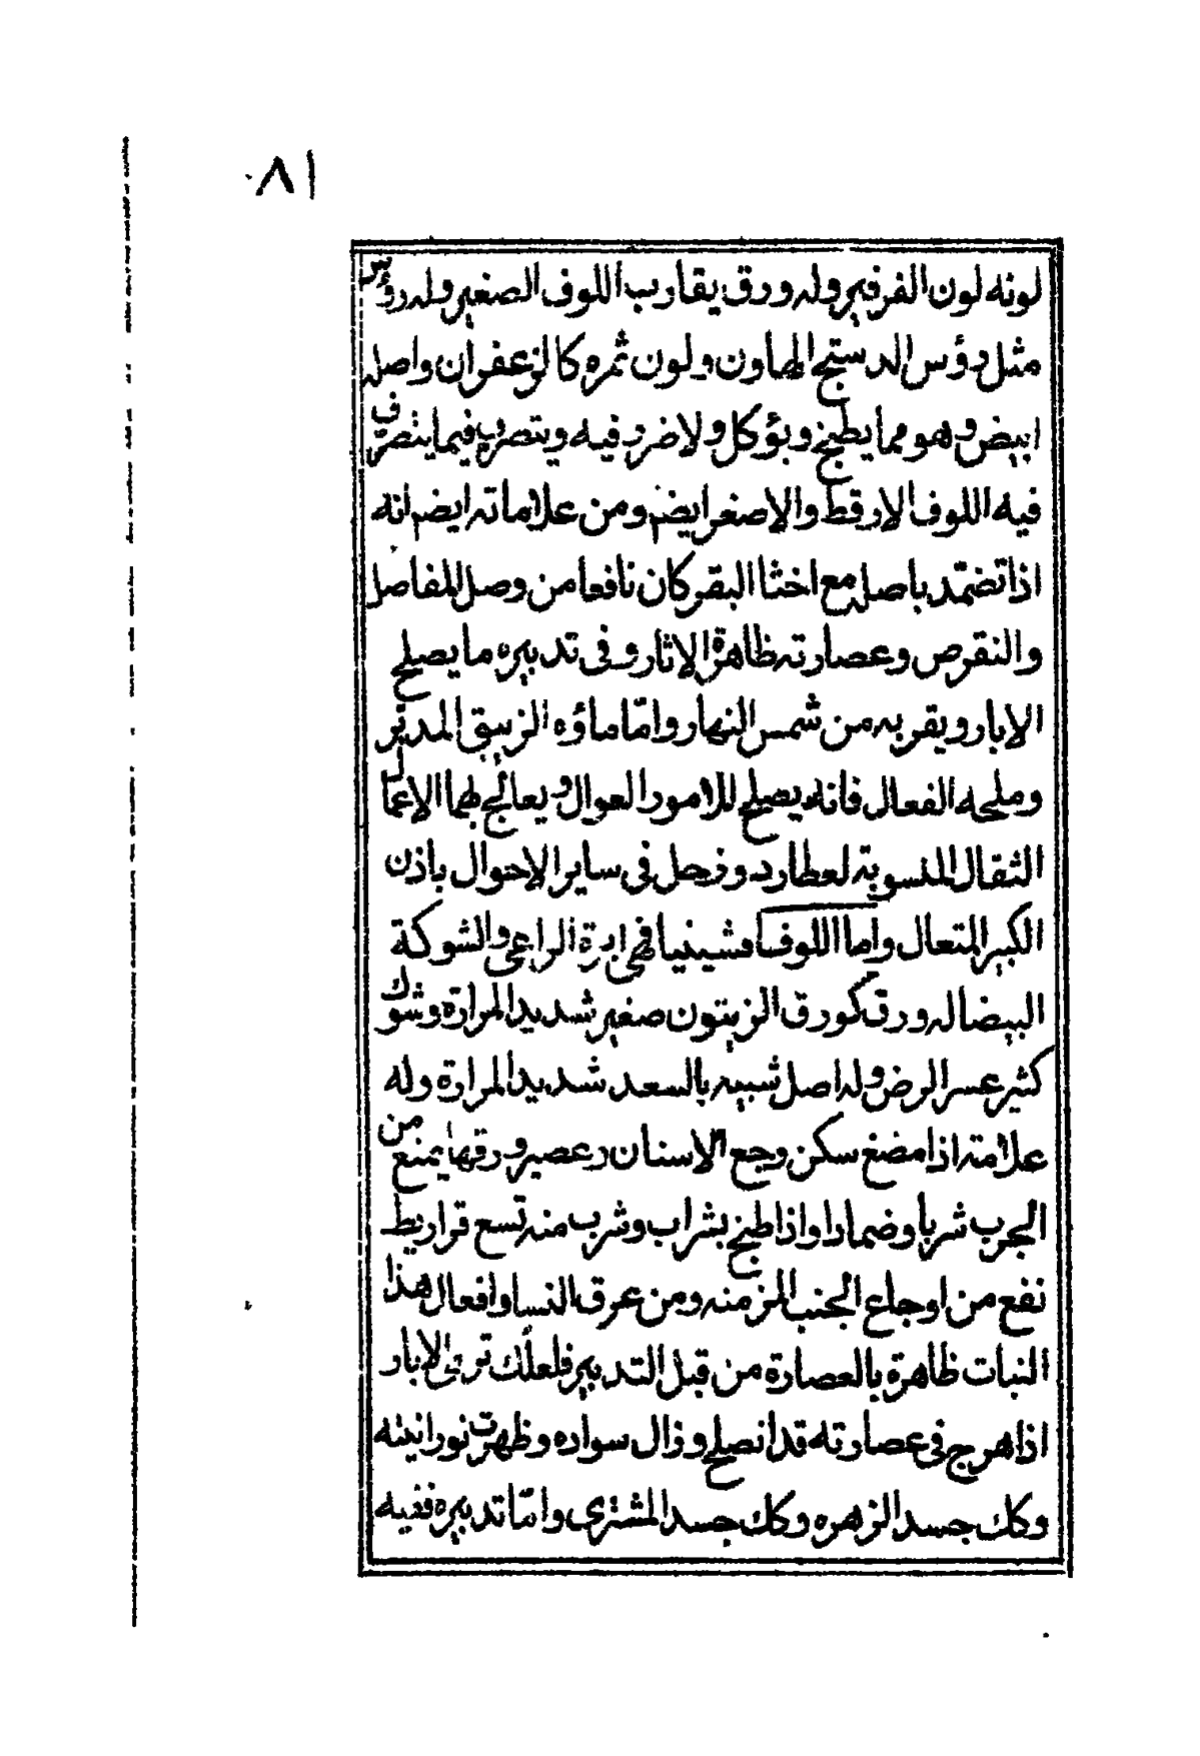 ٨١
لونه لون الفرفير وله ورق يقارب اللوف الصغير وله رؤس
مثل رؤس الدستج الهاون ولون ثمره كالزعفران واصله
ابيض وهو مما يطبخ ويؤكل ولا ضرر فيه ويتصرف فيما يتصرف
فيه اللوف الارقط والاصغر ايضم ومن علاماته ايضم انه
اذا تضمد باصله مع اخثا البقر كان نافعا من وصل المفاصل
والنقرص وعصارته ظاهرة الاثار وفى تدبيره ما يصلح
الابار ويقربه من شمس النهار واما ماؤه الزيبق المدبر
وملحه الفعال فانه يصلح للامور العوال ويعالج بهما الاعمال
الثقال المنسوبة لعطارد وزحل فى ساير الاحوال باذن
الكبير المتعال واما اللوف فهى ابرة الراعى والشوكة
البيضا له ورق كورق الزيتون صغير شديد المرارة وشوك
كثير عسر الرض وله اصل شبيه بالسعد شديد المرارة وله
علامته اذا مضغ سكن وجع الاسنان وعصير ورقها يمنع من
الجرب شربا وضمادا واذا طبخ بشراب وشرب منه تسع قراريط
نفع من اوجاع الجنب المزمنه ومن عرق النسا وافعال هذا
النبات ظاهرة بالعصارة من قبل التدبير فلعلك الابار
اذا هرج فى عصارته قد انصلح وزال سواده وظهرت نورانيته
وكك جسد الزهره وكك جسد المشترى واما تدبيره ففيه